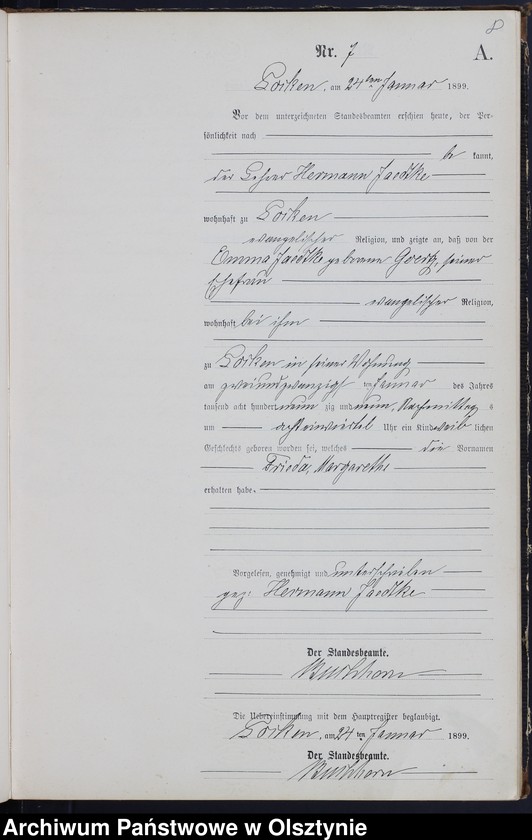 8
Nr. 7 A.
Goiken, am 24ten Januar 1899.
Vor dem unterzeichneten Standesbeamten erschien heute, der Per-
sönlichkeit nach
be kannt,
der Lehrer Hermann Jaedtke
wohnhaft zu Goiken
evangelischer Religion, und zeigte an, daß von der
Emma Jaedtke geborenen Goertz, seiner
Ehefrau
evangelischer Religion,
wohnhaft bei ihm
zu Goiken in seiner Wohnung
am zweiundzwanzigsten Januar des Jahres
tausend acht hundert neun zig und neun, Nachmittag s
um achteinviertel Uhr ein Kind weib lichen
Geschlechts geboren worden sei, welches die Vornamen
Frieda, Margarethe
erhalten habe.
Vorgelesen, genehmigt und unterschrieben
gez: Hermann Jaedtke
Der Standesbeamte.
Die Uebereinstimmung mit dem Hauptregister beglaubigt.
Goiken, am 24 ten Januar 1899.
Der Standesbeamte.
Archiwum Państwowe w Olsztynie